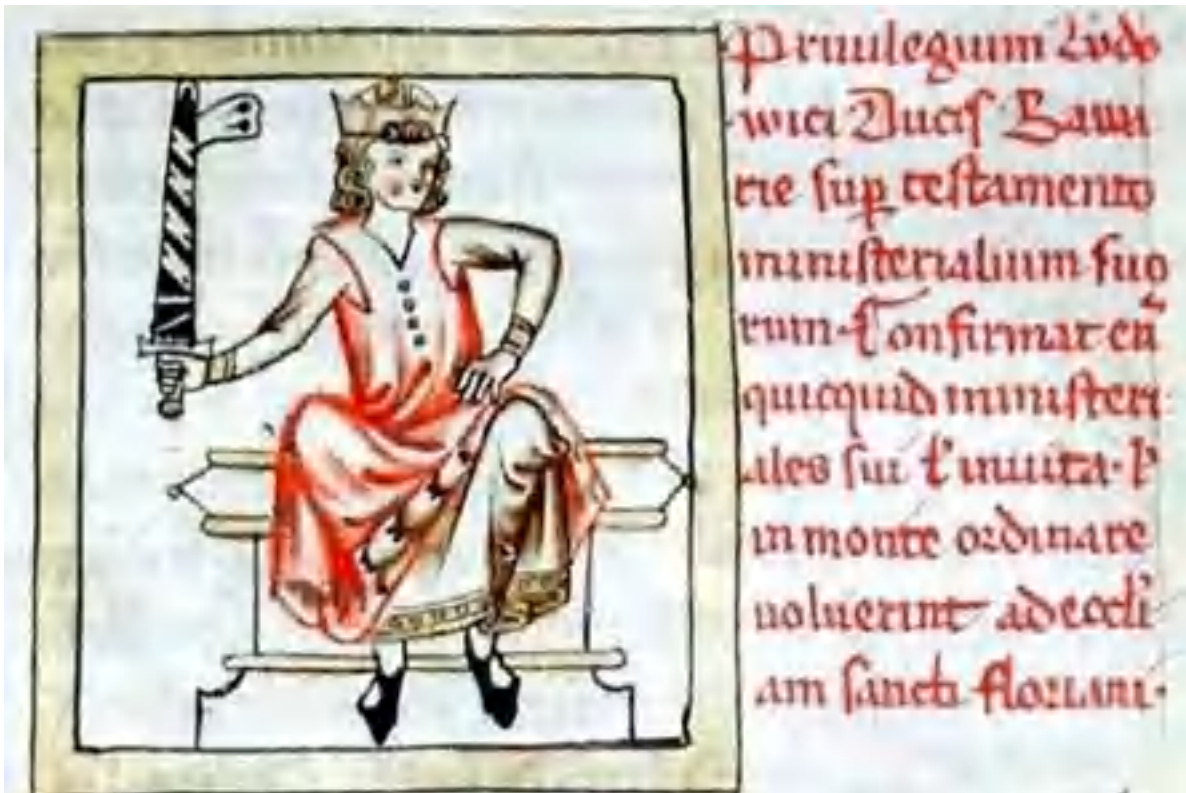 Priuilegium Ludo
wici Ducis Bawa
rie sup testamento
ministerialium suo
rum. Confirmat eni
quicquid ministeri
ales sui t' inuita.
in monte ordinare
uoluerint ad eccli
am sancti floriani.